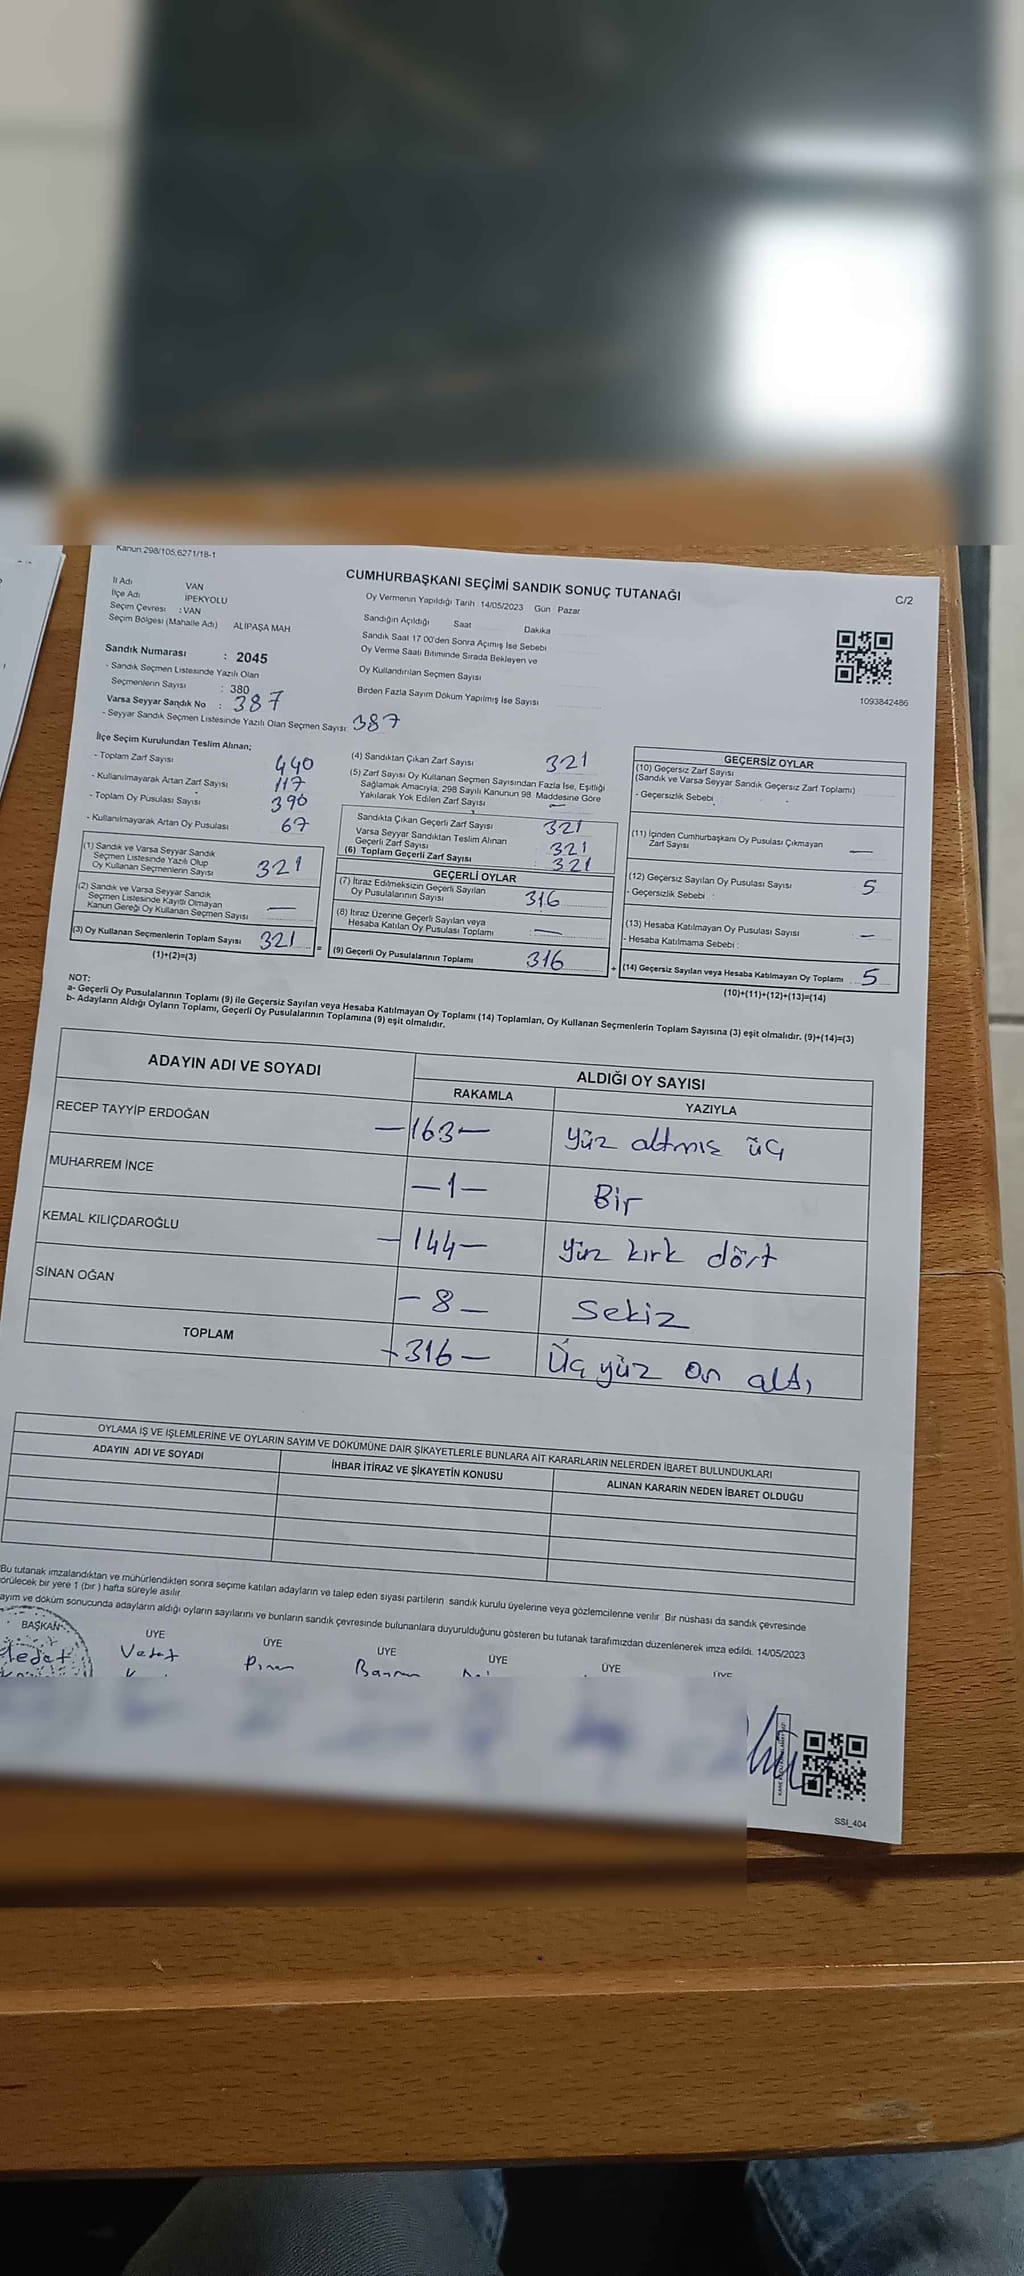 Kanun 298/105,6271/18-1
CUMHURBAŞKANI SEÇİMİ SANDIK SONUÇ TUTANAĞI
C/2
İl Adı VAN
İlçe Adı İPEKYOLU
Seçim Çevresi : VAN
Seçim Bölgesi (Mahalle Adı) ALİPAŞA MAH
Oy Vermenin Yapıldığı Tarih 14/05/2023 Gün Pazar
Sandığın Açıldığı Saat Dakika
Sandık Saat 17 00'den Sonra Açımış İse Sebebi
Oy Verme Saati Bitiminde Sırada Bekleyen ve
Oy Kullandırılan Seçmen Sayısı
Birden Fazla Sayım Döküm Yapılmış İse Sayısı
1093842486
Sandık Numarası : 2045
- Sandık Seçmen Listesinde Yazılı Olan
Seçmenlerin Sayısı : 380
Varsa Seyyar Sandık No : 387
- Seyyar Sandık Seçmen Listesinde Yazılı Olan Seçmen Sayısı 387
İlçe Seçim Kurulundan Teslim Alınan;
- Toplam Zarf Sayısı 440
- Kullanılmayarak Artan Zarf Sayısı 117
- Toplam Oy Pusulası Sayısı 390
- Kullanılmayarak Artan Oy Pusulası 67
(1) Sandık ve Varsa Seyyar Sandık
Seçmen Listesinde Yazılı Olup
Oy Kullanan Seçmenlerin Sayısı 321
(2) Sandık ve Varsa Seyyar Sandık
Seçmen Listesinde Kayıtlı Olmayan
Kanun Gereği Oy Kullanan Seçmen Sayısı —
(3) Oy Kullanan Seçmenlerin Toplam Sayısı 321
(1)+(2)=(3)
(4) Sandıktan Çıkan Zarf Sayısı 321
(5) Zarf Sayısı Oy Kullanan Seçmen Sayısından Fazla İse, Eşitliği
Sağlamak Amacıyla, 298 Sayılı Kanunun 98 Maddesine Göre
Yakılarak Yok Edilen Zarf Sayısı —
Sandıkta Çıkan Geçerli Zarf Sayısı 321
Varsa Seyyar Sandıktan Teslim Alınan
Geçerli Zarf Sayısı 321
(6) Toplam Geçerli Zarf Sayısı : 321
GEÇERLİ OYLAR
(7) İtiraz Edilmeksizin Geçerli Sayılan
Oy Pusulalarının Sayısı 316
(8) İtiraz Üzerine Geçerli Sayılan veya
Hesaba Katılan Oy Pusulası Toplamı —
= (9) Geçerli Oy Pusulalarının Toplamı 316
GEÇERSİZ OYLAR
(10) Geçersiz Zarf Sayısı
(Sandık ve Varsa Seyyar Sandık Geçersiz Zarf Toplamı)
- Geçersizlik Sebebi
(11) İçinden Cumhurbaşkanı Oy Pusulası Çıkmayan
Zarf Sayısı —
(12) Geçersiz Sayılan Oy Pusulası Sayısı 5
- Geçersizlik Sebebi :
(13) Hesaba Katılmayan Oy Pusulası Sayısı —
- Hesaba Katılmama Sebebi :
+ (14) Geçersiz Sayılan veya Hesaba Katılmayan Oy Toplamı 5
(10)+(11)+(12)+(13)=(14)
NOT:
a- Geçerli Oy Pusulalarının Toplamı (9) ile Geçersiz Sayılan veya Hesaba Katılmayan Oy Toplamı (14) Toplamları, Oy Kullanan Seçmenlerin Toplam Sayısına (3) eşit olmalıdır. (9)+(14)=(3)
b- Adayların Aldığı Oyların Toplamı, Geçerli Oy Pusulalarının Toplamına (9) eşit olmalıdır.
ADAYIN ADI VE SOYADI
ALDIĞI OY SAYISI
RAKAMLA YAZIYLA
RECEP TAYYİP ERDOĞAN —163— Yüz altmış üç
MUHARREM İNCE —1— Bir
KEMAL KILIÇDAROĞLU —144— Yüz kırk dört
SİNAN OĞAN —8— Sekiz
TOPLAM —316— Üç yüz on altı
OYLAMA İŞ VE İŞLEMLERİNE VE OYLARIN SAYIM VE DÖKÜMÜNE DAİR ŞİKAYETLERLE BUNLARA AİT KARARLARIN NELERDEN İBARET BULUNDUKLARI
ADAYIN ADI VE SOYADI İHBAR İTİRAZ VE ŞİKAYETİN KONUSU ALINAN KARARIN NEDEN İBARET OLDUĞU
Bu tutanak imzalandıktan ve mühürlendikten sonra seçime katılan adayların ve talep eden siyasi partilerin sandık kurulu üyelerine veya gözlemcilerine verilir Bir nüshası da sandık çevresinde
görülecek bir yere 1 (bir) hafta süreyle asılır.
ayım ve döküm sonucunda adayların aldığı oyların sayılarını ve bunların sandık çevresinde bulunanlara duyurulduğunu gösteren bu tutanak tarafımızdan düzenlenerek imza edildi. 14/05/2023
BAŞKAN ÜYE ÜYE ÜYE ÜYE ÜYE ÜYE
Vedat
SSI_404